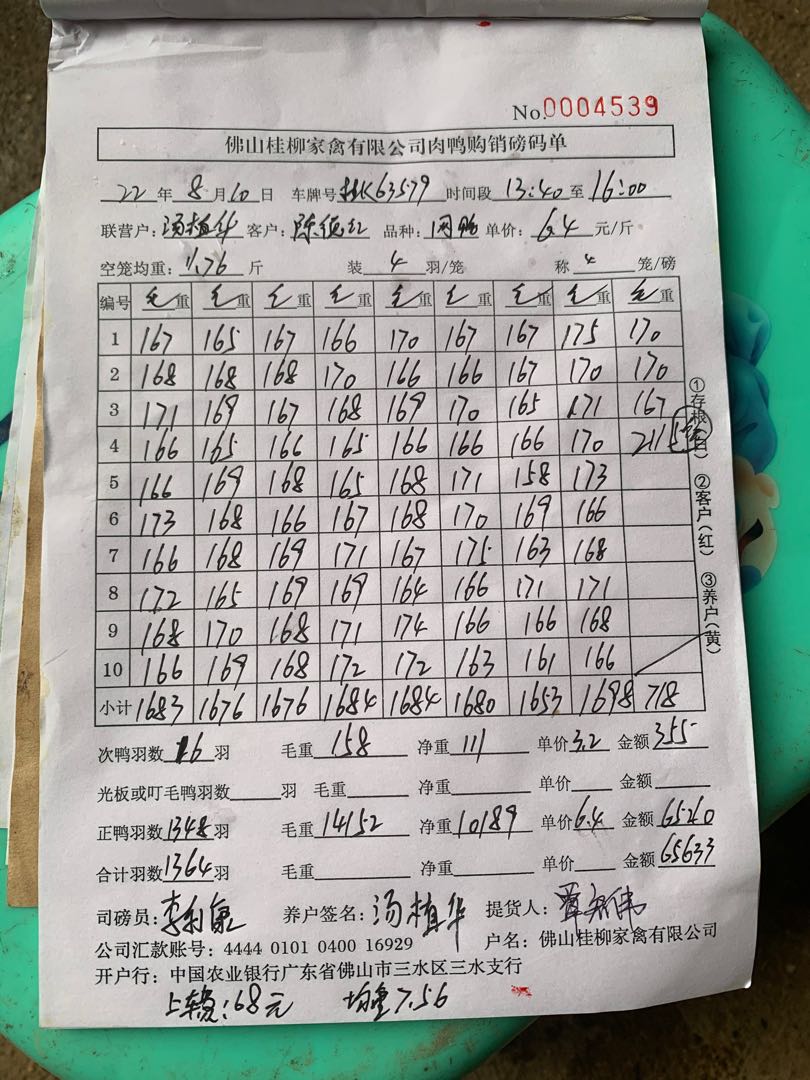 No.0004539
佛山桂柳家禽有限公司肉鸭购销磅码单
22年8月10日 车牌号 63579 时间段13:40至16:00
联营户:汤植华 客户: 品种: 单价:6.4元/斤
空笼均重:11.76斤 装4羽/笼 称4笼/磅
编号 毛重 毛重 毛重 毛重 毛重 毛重 毛重 毛重 毛重
1 167 165 167 166 170 167 167 175 170
2 168 168 168 170 166 166 167 170 170
3 171 169 167 168 169 170 165 171 167
4 166 165 166 165 166 166 166 170 211
5 166 169 168 165 168 171 158 173
6 173 168 166 167 168 170 169 166
7 166 168 169 171 167 175 163 168
8 172 165 169 169 164 166 171 171
9 168 170 168 171 174 166 166 168
10 166 169 168 172 172 163 161 166
小计 1683 1676 1676 1684 1684 1680 1653 1698 718
①存根(白) ②客户(红) ③养户(黄)
次鸭羽数16羽 毛重158 净重111 单价3.2 金额355
光板或叮毛鸭羽数 羽 毛重 净重 单价 金额
正鸭羽数1348羽 毛重14152 净重10189 单价6.4 金额65210
合计羽数1364羽 毛重 净重 单价 金额65633
司磅员:李利康 养户签名:汤植华 提货人:
公司汇款账号:4444 0101 0400 16929 户名:佛山桂柳家禽有限公司
开户行:中国农业银行广东省佛山市三水区三水支行
上车费:68元 均重7.56